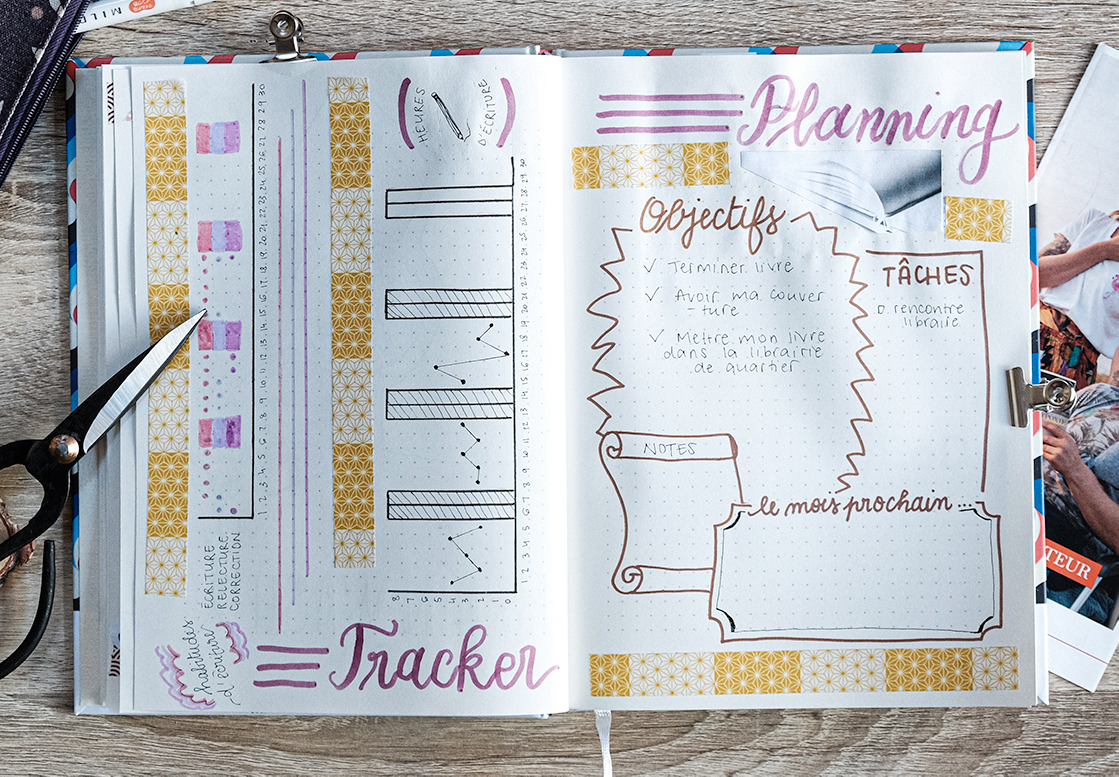 MILD
Tracker
habitudes
d'écriture
ÉCRITURE
RELECTURE
CORRECTION
1 2 3 4 5 6 7 8 9 10 11 12 13 14 15 16 17 18 19 20 21 22 23 24 25 26 27 28 29 30
(HEURES
D'ÉCRITURE)
8 7 6 5 4 3 2 1 0
1 2 3 4 5 6 7 8 9 10 11 12 13 14 15 16 17 18 19 20 21 22 23 24 25 26 27 28 29 30
Planning
Objectifs
✓ Terminer livre
✓ Avoir ma couver
-ture
✓ Mettre mon livre
dans la librairie
de quartier
TÂCHES
□ rencontre
libraire
NOTES
le mois prochain ...
TEUR